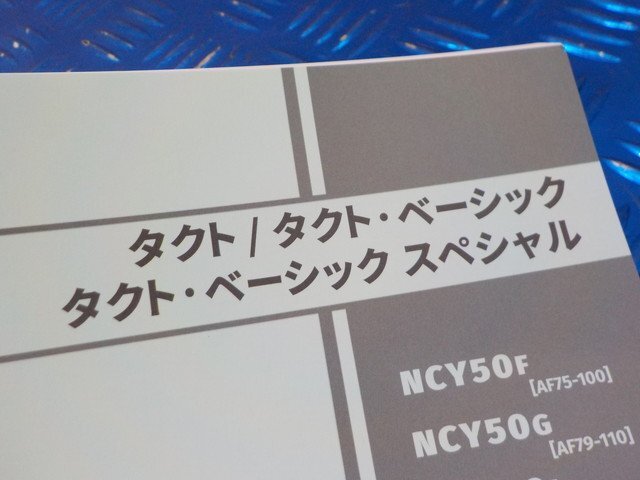 タクト / タクト・ベーシック
タクト・ベーシック スペシャル
NCY50F [AF75-100]
NCY50G [AF79-110]